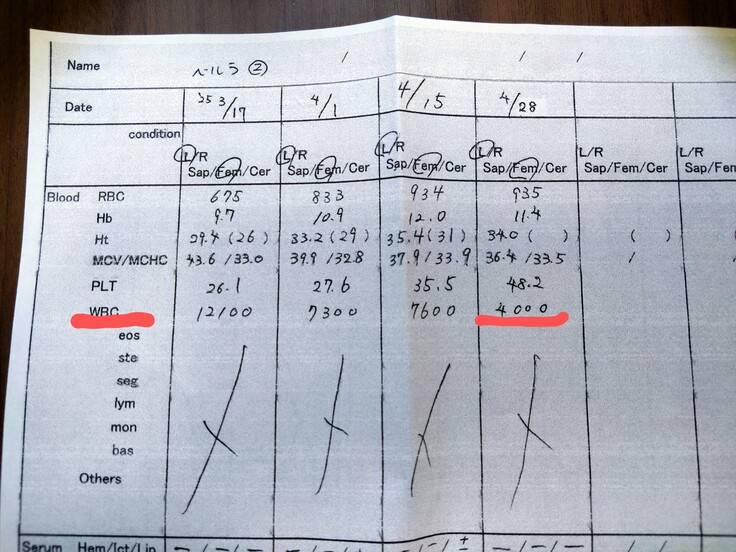 Name ベルラ ②
Date '25 3/17 4/1 4/15 4/28
condition
L/R L/R L/R L/R L/R L/R
Sap/Fem/Cer Sap/Fem/Cer Sap/Fem/Cer Sap/Fem/Cer Sap/Fem/Cer Sap/Fem
Blood RBC 675 833 934 935
Hb 9.7 10.9 12.0 11.4
Ht 29.4 (26) 33.2 (29) 35.4 (31) 34.0 ( ) ( ) (
MCV/MCHC 43.6 /33.0 39.9 /32.8 37.9 /33.9 36.4 /33.5 / /
PLT 26.1 27.6 35.5 48.2
WBC 12100 7300 7600 4000
eos
ste
seg
lym
mon
bas
Others
Serum Hem/Ict/Lip - / - / - - / - / - - / ± - / - / - / / /